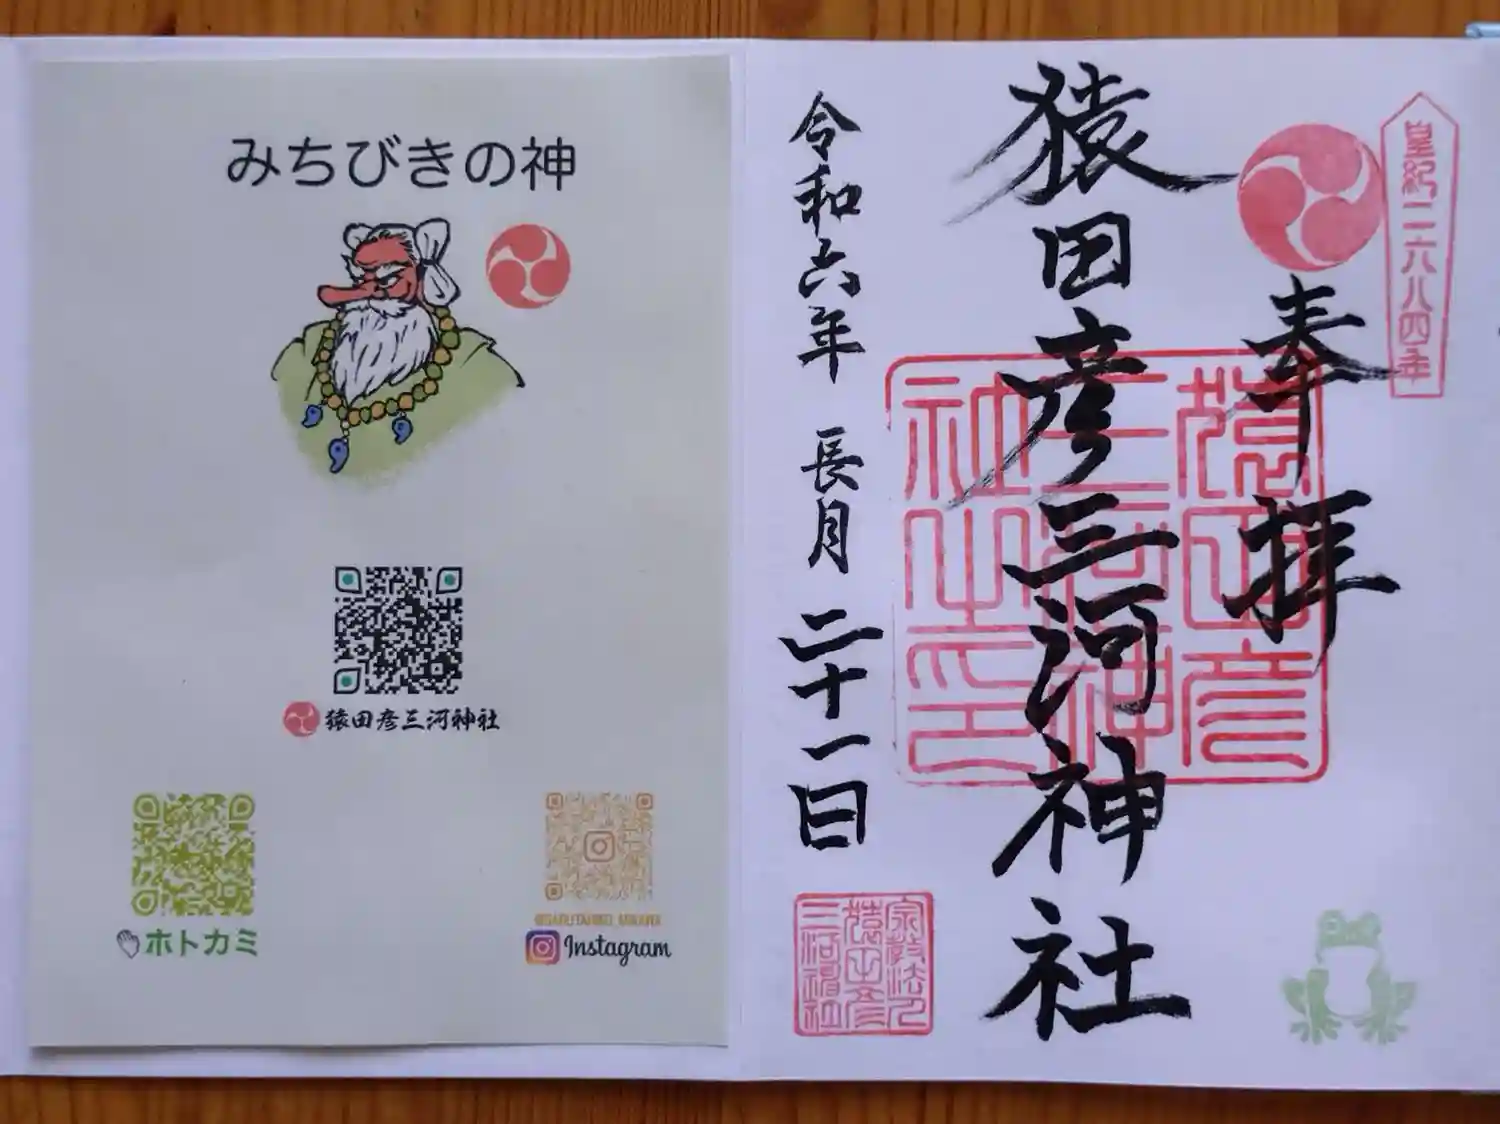 みちびきの神
猿田彦三河神社
ホトカミ
Instagram
皇紀二六八四年
奉拝
猿田彦三河神社
猿田彦三河神社之印
令和六年 長月 二十一日
宗教法人猿田彦三河神社